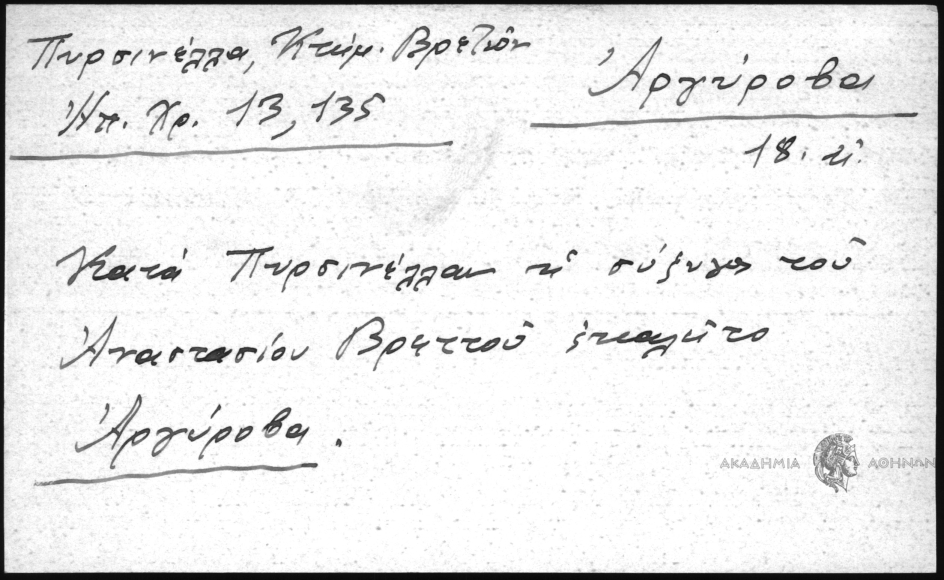 Πυρσινέλλα, Κτημ. Βρετῶν
Ἠπ. Χρ. 13, 135
Ἀργύροβα
18. ἡ.
Κατὰ Πυρσινέλλαν ἡ σύζυγος τοῦ
Ἀναστασίου Βρεττοῦ ἐκαλεῖτο
Ἀργύροβα.
ΑΚΑΔΗΜΙΑ ΑΘΗΝΩΝ